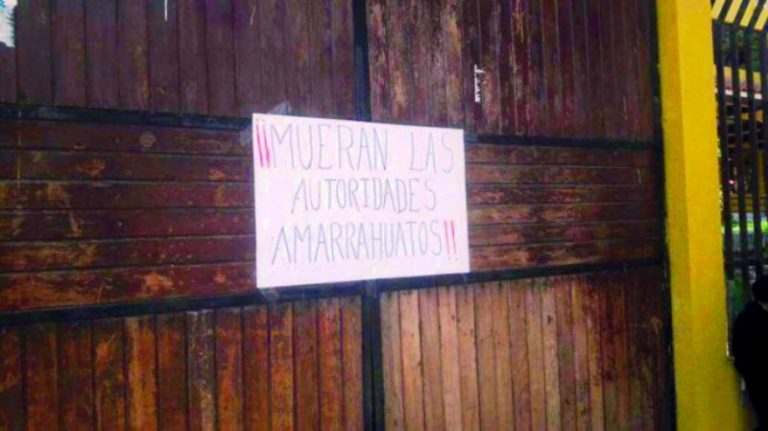 ¡¡MUERAN LAS
AUTORIDADES
AMARRAHUATOS!!